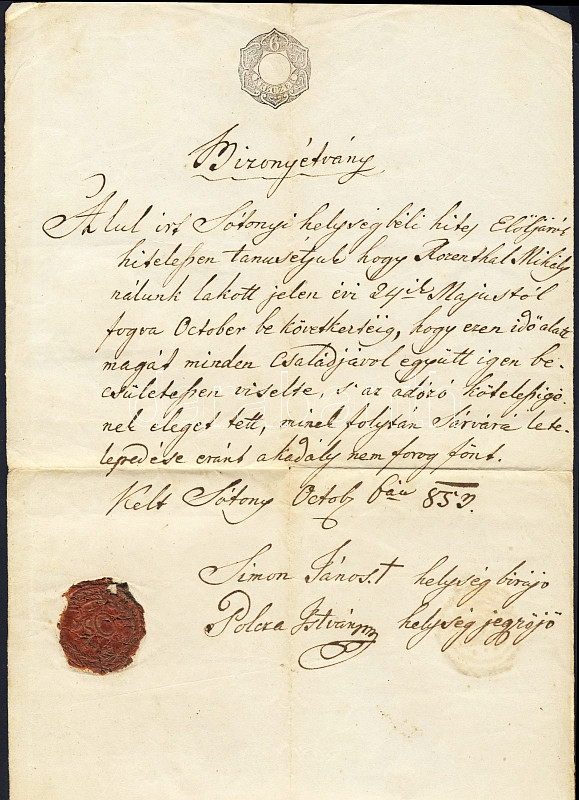 6
Bizonyétvány
Alul irt Sótonyi helységbéli hites Elöljárós
hitelessen tanusétjuk hogy Rozenthal Mihály
nálunk lakott jelen évi 24ik Majustól
fogva October be következtéig, hogy ezen idő alatt
magát minden Családjával együtt igen be-
csületessen viselte, s az adózó kötelességé
nek eleget tett, minek folytán Sárvára lete-
lepedése eránt akadály nem forog fönt.
Kelt Sótony Octob 6án 853.
Simon János. † helység birájo
Polcza István helység jegzöjö